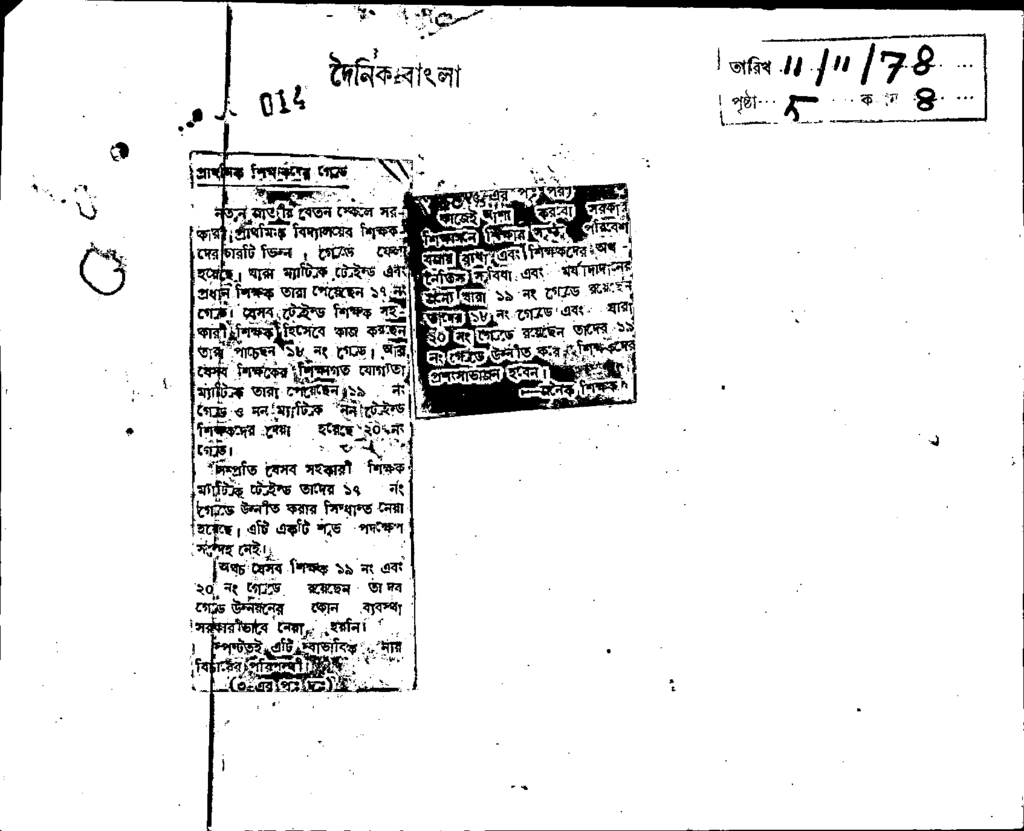 দৈনিক বাংলা
014
তারিখ 11/11/78
পৃষ্ঠা 5 8
প্রাথমিক শিক্ষকদের গ্রেড
নতুন জাতীয় বেতন স্কেলে সর-
কারী প্রাথমিক বিদ্যালয়ের শিক্ষক-
দের চারটি ভিন্ন গ্রেডে ফেলা
হয়েছে। যারা ম্যাট্রিক ট্রেইন্ড এবং
প্রধান শিক্ষক তারা পেয়েছেন ১৭ নং
গ্রেড। যেসব ট্রেইন্ড শিক্ষক সহ-
কারী শিক্ষক হিসেবে কাজ করছেন
তারা পাচ্ছেন ১৮ নং গ্রেড। আর
যেসব শিক্ষকের শিক্ষাগত যোগ্যতা
ম্যাট্রিক তারা পেয়েছেন ১৯ নং
গ্রেড ও নন ম্যাট্রিক নন ট্রেইন্ড
শিক্ষকদের দেয়া হয়েছে ২০ নং
গ্রেড।
সম্প্রতি যেসব সহকারী শিক্ষক
ম্যাট্রিক ট্রেইন্ড তাদের ১৭ নং
গ্রেডে উন্নীত করার সিদ্ধান্ত নেয়া
হয়েছে। এটি একটি শুভ পদক্ষেপ
সন্দেহ নেই।
অথচ যেসব শিক্ষক ১৯ নং এবং
২০ নং গ্রেডে রয়েছেন তাদের
গ্রেড উন্নয়নের কোন ব্যবস্থা
সরকারীভাবে নেয়া হয়নি।
স্পষ্টতই এটি স্বাভাবিক ন্যায়
বিচারের পরিপন্থী।
এর পৃঃ পর)
কাজেই আশা করবো সরকার
শিক্ষাঙ্গনে শিক্ষার সুষ্ঠু পরিবেশ
বজায় রাখা এবং শিক্ষকদের অর্থ-
নৈতিক সুবিধা এবং মর্যাদাদানের
জন্যে যারা ১৯ নং গ্রেডে রয়েছেন
তাদের ১৮ নং গ্রেডে এবং যারা
২০ নং গ্রেডে রয়েছেন তাদের ১৯
নং গ্রেডে উন্নীত করে শিক্ষকদের
প্রশংসাভাজন হবেন।
—জনৈক শিক্ষক।